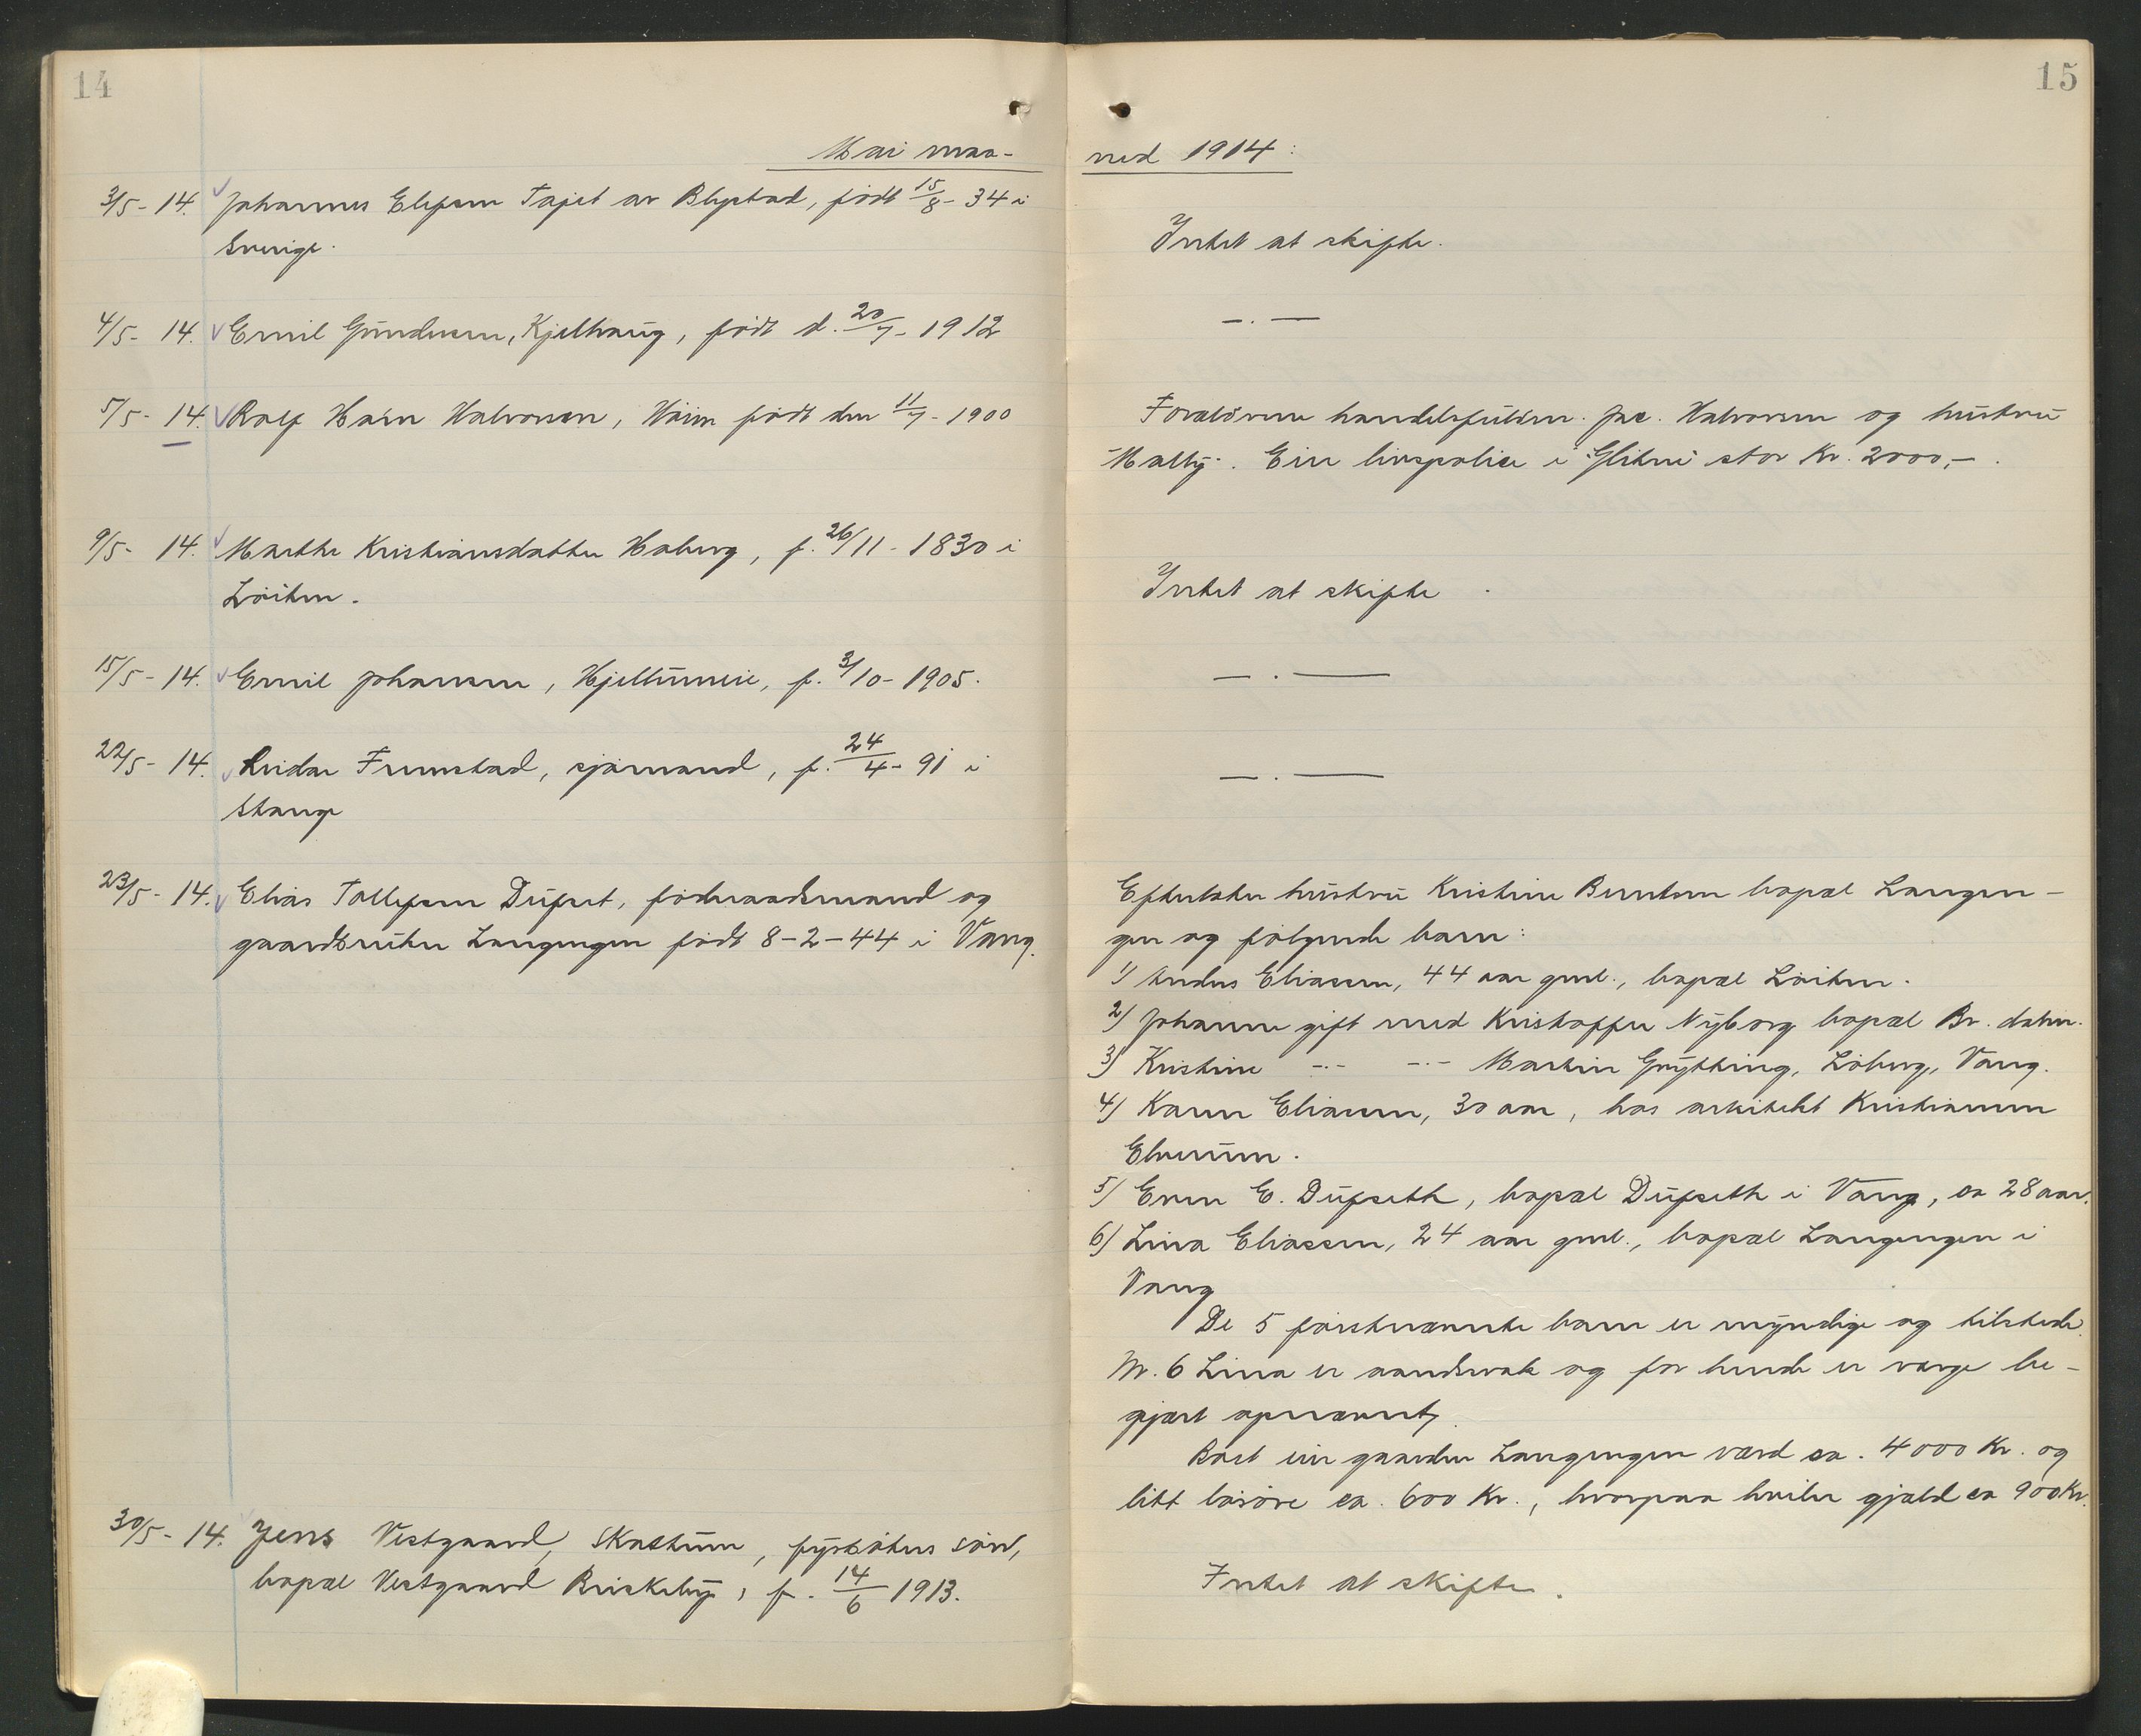 14
Mai maa-
3/5- 14. Johannes Elefsen Tajet av Blystad, født 15/8- 34 i
Sverige.
4/5- 14. Emil Gundersen, Kjelhaug, født d. 20/7- 1912
5/5- 14. Rolf Halvorsen, født den 11/7- 1900
9/5- 14. Marthe Kristiansdatter Haberg, f. 26/11- 1830 i
Löiten.
15/5- 14. Emil Johansen, Hjellumeie, f. 3/10- 1905.
22/5- 14. Reidar Frenstad, sjömand, f. 24/4- 91 i
Stange
23/5- 14. Elias Tollefsen Dufset, föderaadsmand og
gaardbruker Langengen født 8-2-44 i Vang.
30/5- 14. Jens Vestgaard, Skattum, fyrbøters søn,
bopæl Vestgaard Briskeby, f. 14/6 1913.
15
ned 1914:
Intet at skifte.
—.—
Forældrene handelsfuldm. Jac. Halvorsen og hustru
Mally. Eier livspolice i "Glitne" stor Kr. 2000,-.
Intet at skifte.
—.—
—.—
Efterlater hustru Kristine Berntsen bopæl Langen-
gen og følgende barn:
1) Anders Eliassen, 44 aar gml., bopæl Löiten.
2) Johanne gift med Kristoffer Nyborg bopæl Br. dalen.
3) Kristine -.- -.- Martin Grytting, Löberg, Vang.
4) Karen Eliassen, 30 aar, hos arkitekt Kristiansen
Elverum.
5) Even E. Dufseth, bopæl Dufseth i Vang, ca 28 aar.
6) Lina Eliassen, 24 aar gml., bopæl Langengen i
Vang
De 5 førstnævnte barn er myndige og tilstede.
Nr. 6 Lina er aandsvak og for hende er værge be-
gjært opnævnt.
Boet eier gaarden Langengen værd ca. 4000 Kr. og
litt løsøre ca. 600 Kr., hvorpaa hviler gjæld ca 900 Kr.
Intet at skifte.